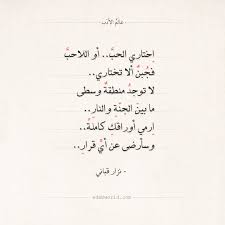 عالم الأدب
اِختاري الحبَّ.. أو اللاحبَّ
فجُبنٌ ألا تختاري..
لا توجدُ منطقةٌ وسطى
ما بينَ الجنّةِ والنار..
اِرمي أوراقكِ كاملةً..
وسأرضى عن أيِّ قرارِ..
- نزار قباني
adabworld.com